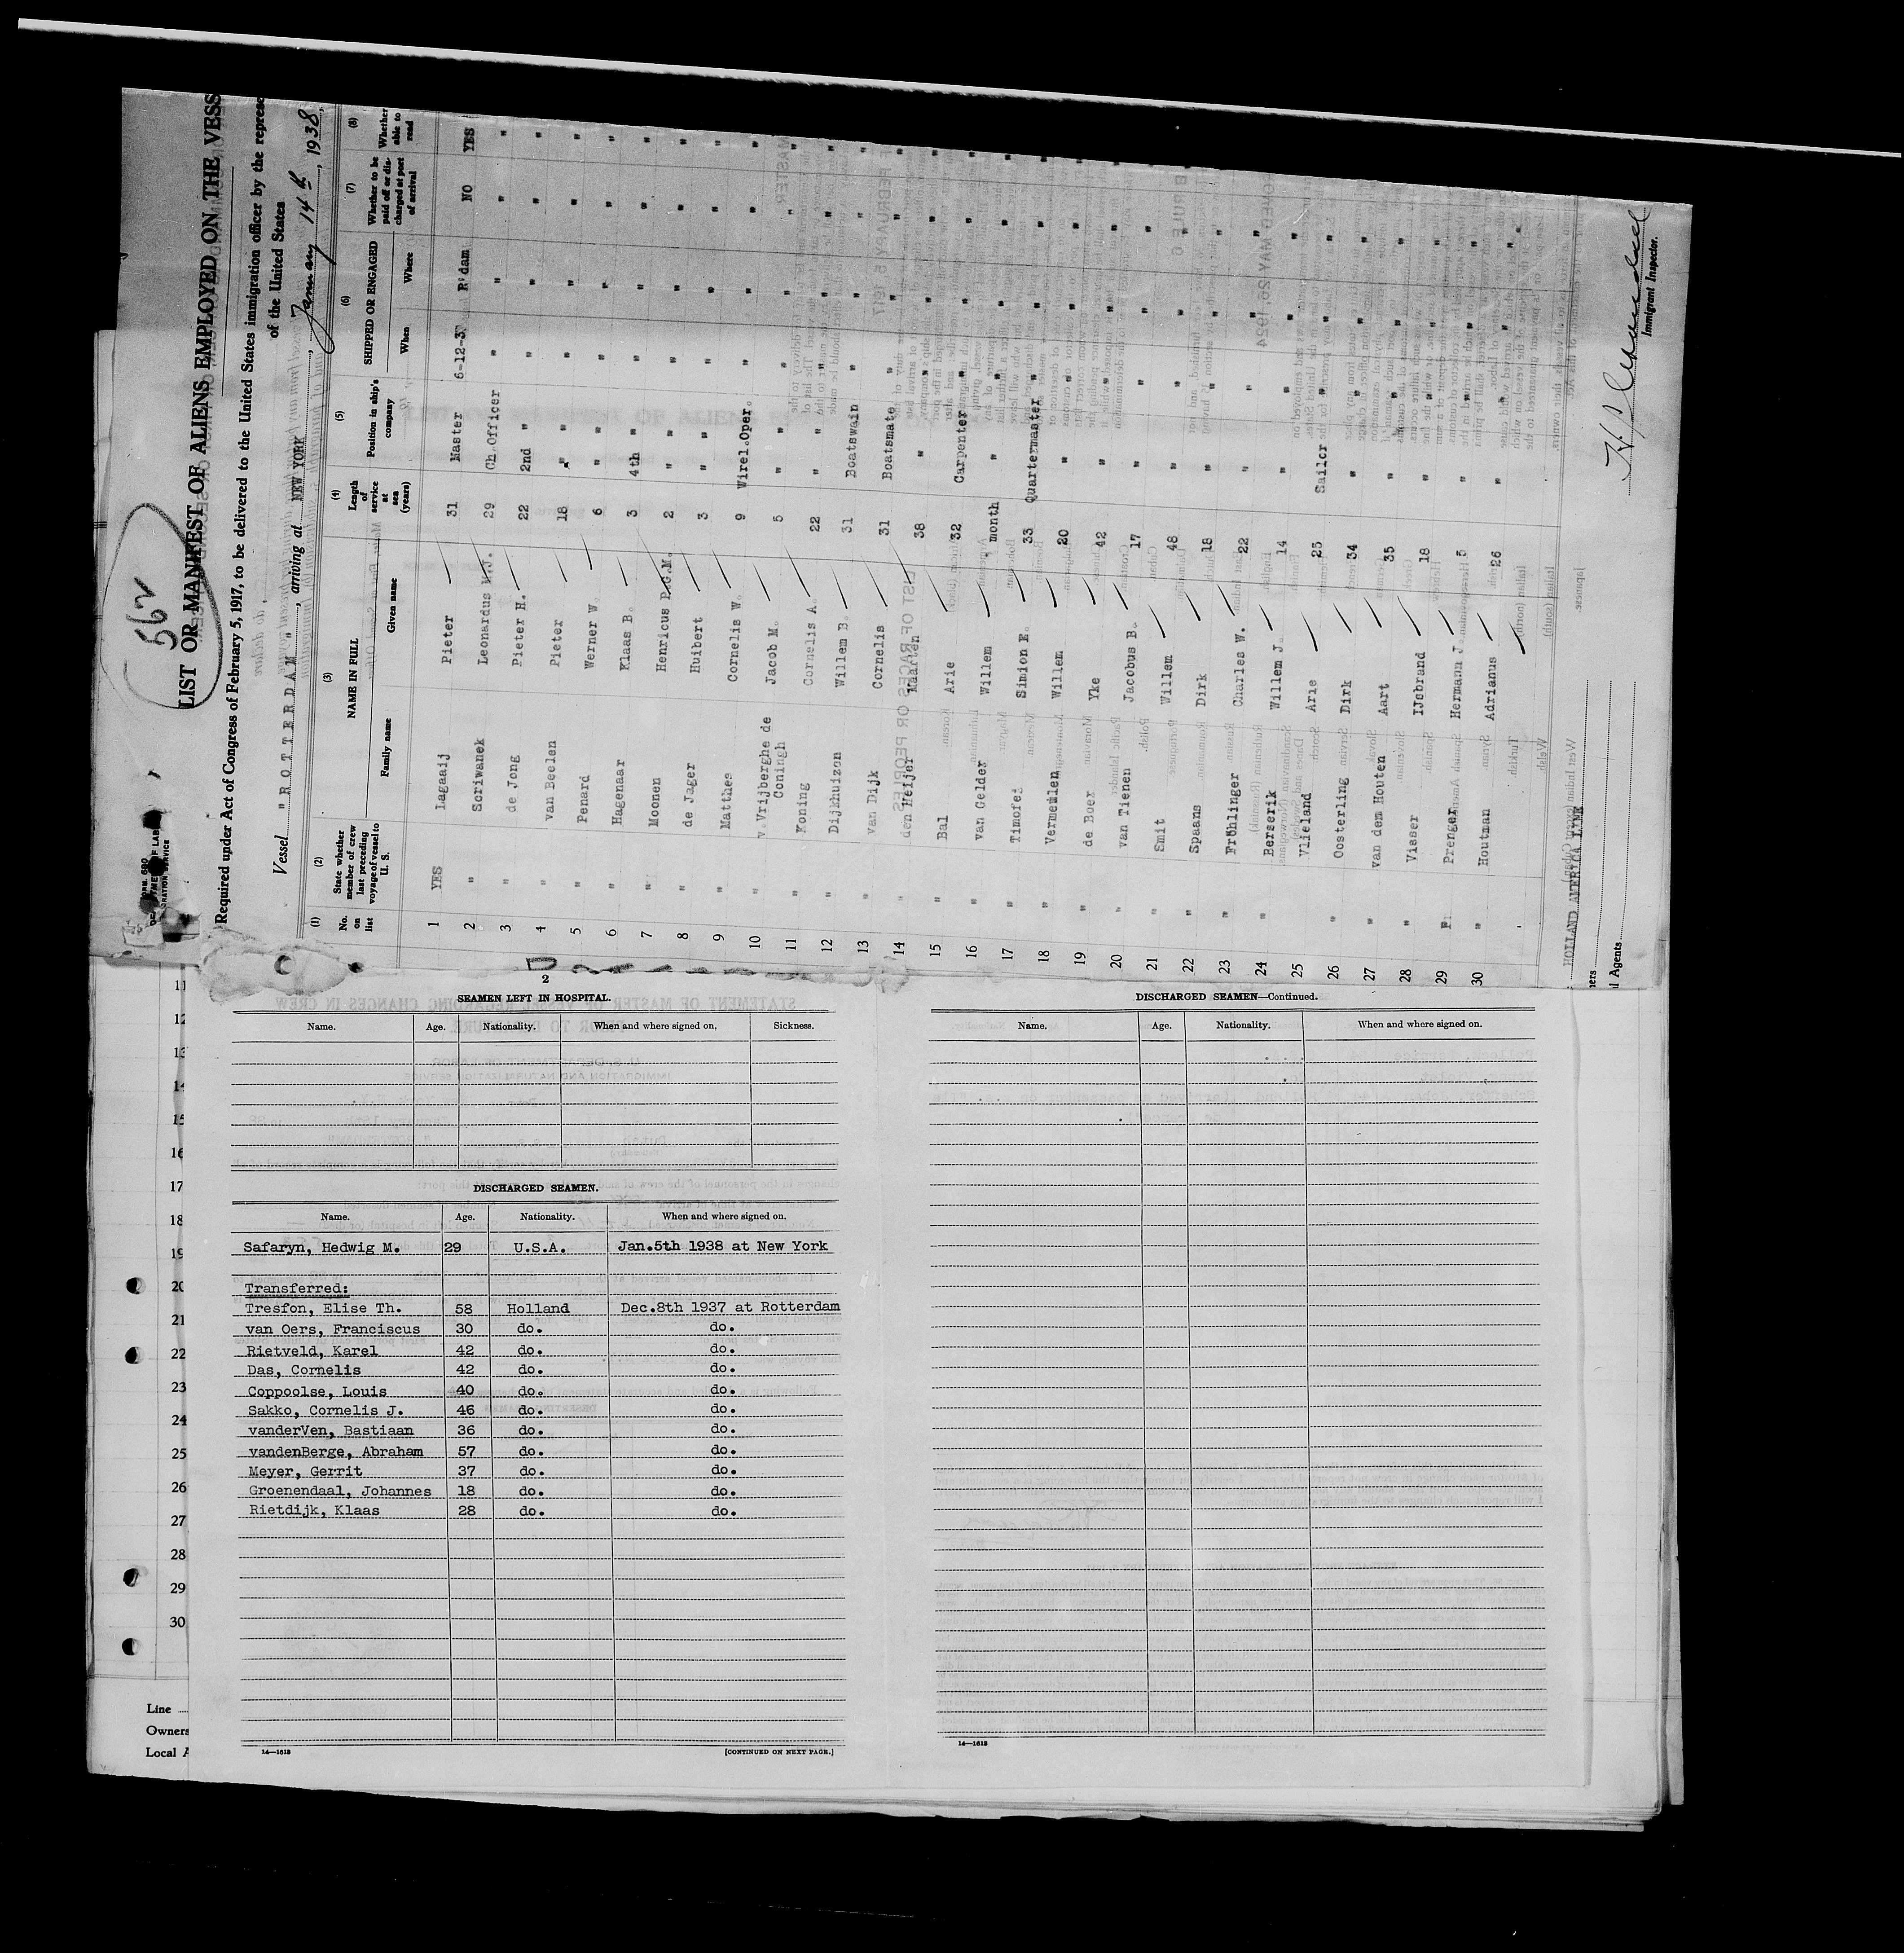 562
FORM 680
LIST OR MANIFEST OF ALIENS EMPLOYED ON THE VESS
Required under Act of Congress of February 5, 1917, to be delivered to the United States immigration officer by the represe
of the United States
Vessel "ROTTERDAM", arriving at NEW YORK, January 14th, 1938,
(1) No. on list
(2) State whether member of crew last preceding voyage of vessel to U. S.
(3) NAME IN FULL
Family name Given name
(4) Length of service at sea (years)
(5) Position in ship's company
(6) SHIPPED OR ENGAGED
When Where
(7) Whether to be paid off or discharged at port of arrival
(8) Whether able to read
1 YES Lagaaij Pieter 31 Master 6-12-37 R'dam NO YES
2 " Scriwanek Leonardus M.J. 29 Ch.Officer " " " "
3 " de Jong Pieter H. 22 2nd " " " " "
4 " van Beelen Pieter 18 " " " " "
5 " Penard Werner W. 6 " " " " "
6 " Hagenaar Klaas B. 3 4th " " " " "
7 " Moonen Henricus P.G.M. 2 " " " " "
8 " de Jager Huibert 3 " " " " "
9 " Matthes Cornelis W. 9 Wirel.Oper. " " " "
10 " v.Vrijberghe de Coningh Jacob M. 5 " " " " "
11 " Koning Cornelis A. 22 " " " " "
12 " Dijkhuizen Willem B. 31 Boatswain " " " "
13 " van Dijk Cornelis 31 Boatsmate " " " "
14 " den Heijer Maarten 38 " " " " "
15 " Bal Arie 32 Carpenter " " " "
16 " van Gelder Willem month " " " " "
17 " Timofei Simion E. 33 Quartermaster " " " "
18 " Vermeulen Willem 20 " " " " "
19 " de Boer Yke 42 " " " " "
20 " van Tienen Jacobus B. 17 " " " " "
21 " Smit Willem 48 " " " " "
22 " Spaans Dirk 18 " " " " "
23 " Frühlinger Charles W. 22 " " " " "
24 " Berserik Willem J. 14 " " " " "
25 Vlieland Arie 25 Sailor " " " "
26 " Oosterling Dirk 34 " " " " "
27 " van dem Houten Aart 35 " " " " "
28 " Visser IJsbrand 18 " " " " "
29 " Prenger Hermann J. 5 " " " " "
30 " Houtman Adrianus 26 " " " " "
HOLLAND AMERICA LINE
Immigrant Inspector.
11
12
13
14
15
16
17
18
19
20
21
22
23
24
25
26
27
28
29
30
Line
Owners
Local A
2
SEAMEN LEFT IN HOSPITAL.
Name. Age. Nationality. When and where signed on. Sickness.
DISCHARGED SEAMEN.
Name. Age. Nationality. When and where signed on.
Safaryn, Hedwig M. 29 U.S.A. Jan.5th 1938 at New York
Transferred:
Tresfon, Elise Th. 58 Holland Dec.8th 1937 at Rotterdam
van Oers, Franciscus 30 do. do.
Rietveld, Karel 42 do. do.
Das, Cornelis 42 do. do.
Coppoolse, Louis 40 do. do.
Sakko, Cornelis J. 46 do. do.
vanderVen, Bastiaan 36 do. do.
vandenBerge, Abraham 57 do. do.
Meyer, Gerrit 37 do. do.
Groenendaal, Johannes 18 do. do.
Rietdijk, Klaas 28 do. do.
14—1613 [CONTINUED ON NEXT PAGE.]
DISCHARGED SEAMEN—Continued.
Name. Age. Nationality. When and where signed on.
14—1613